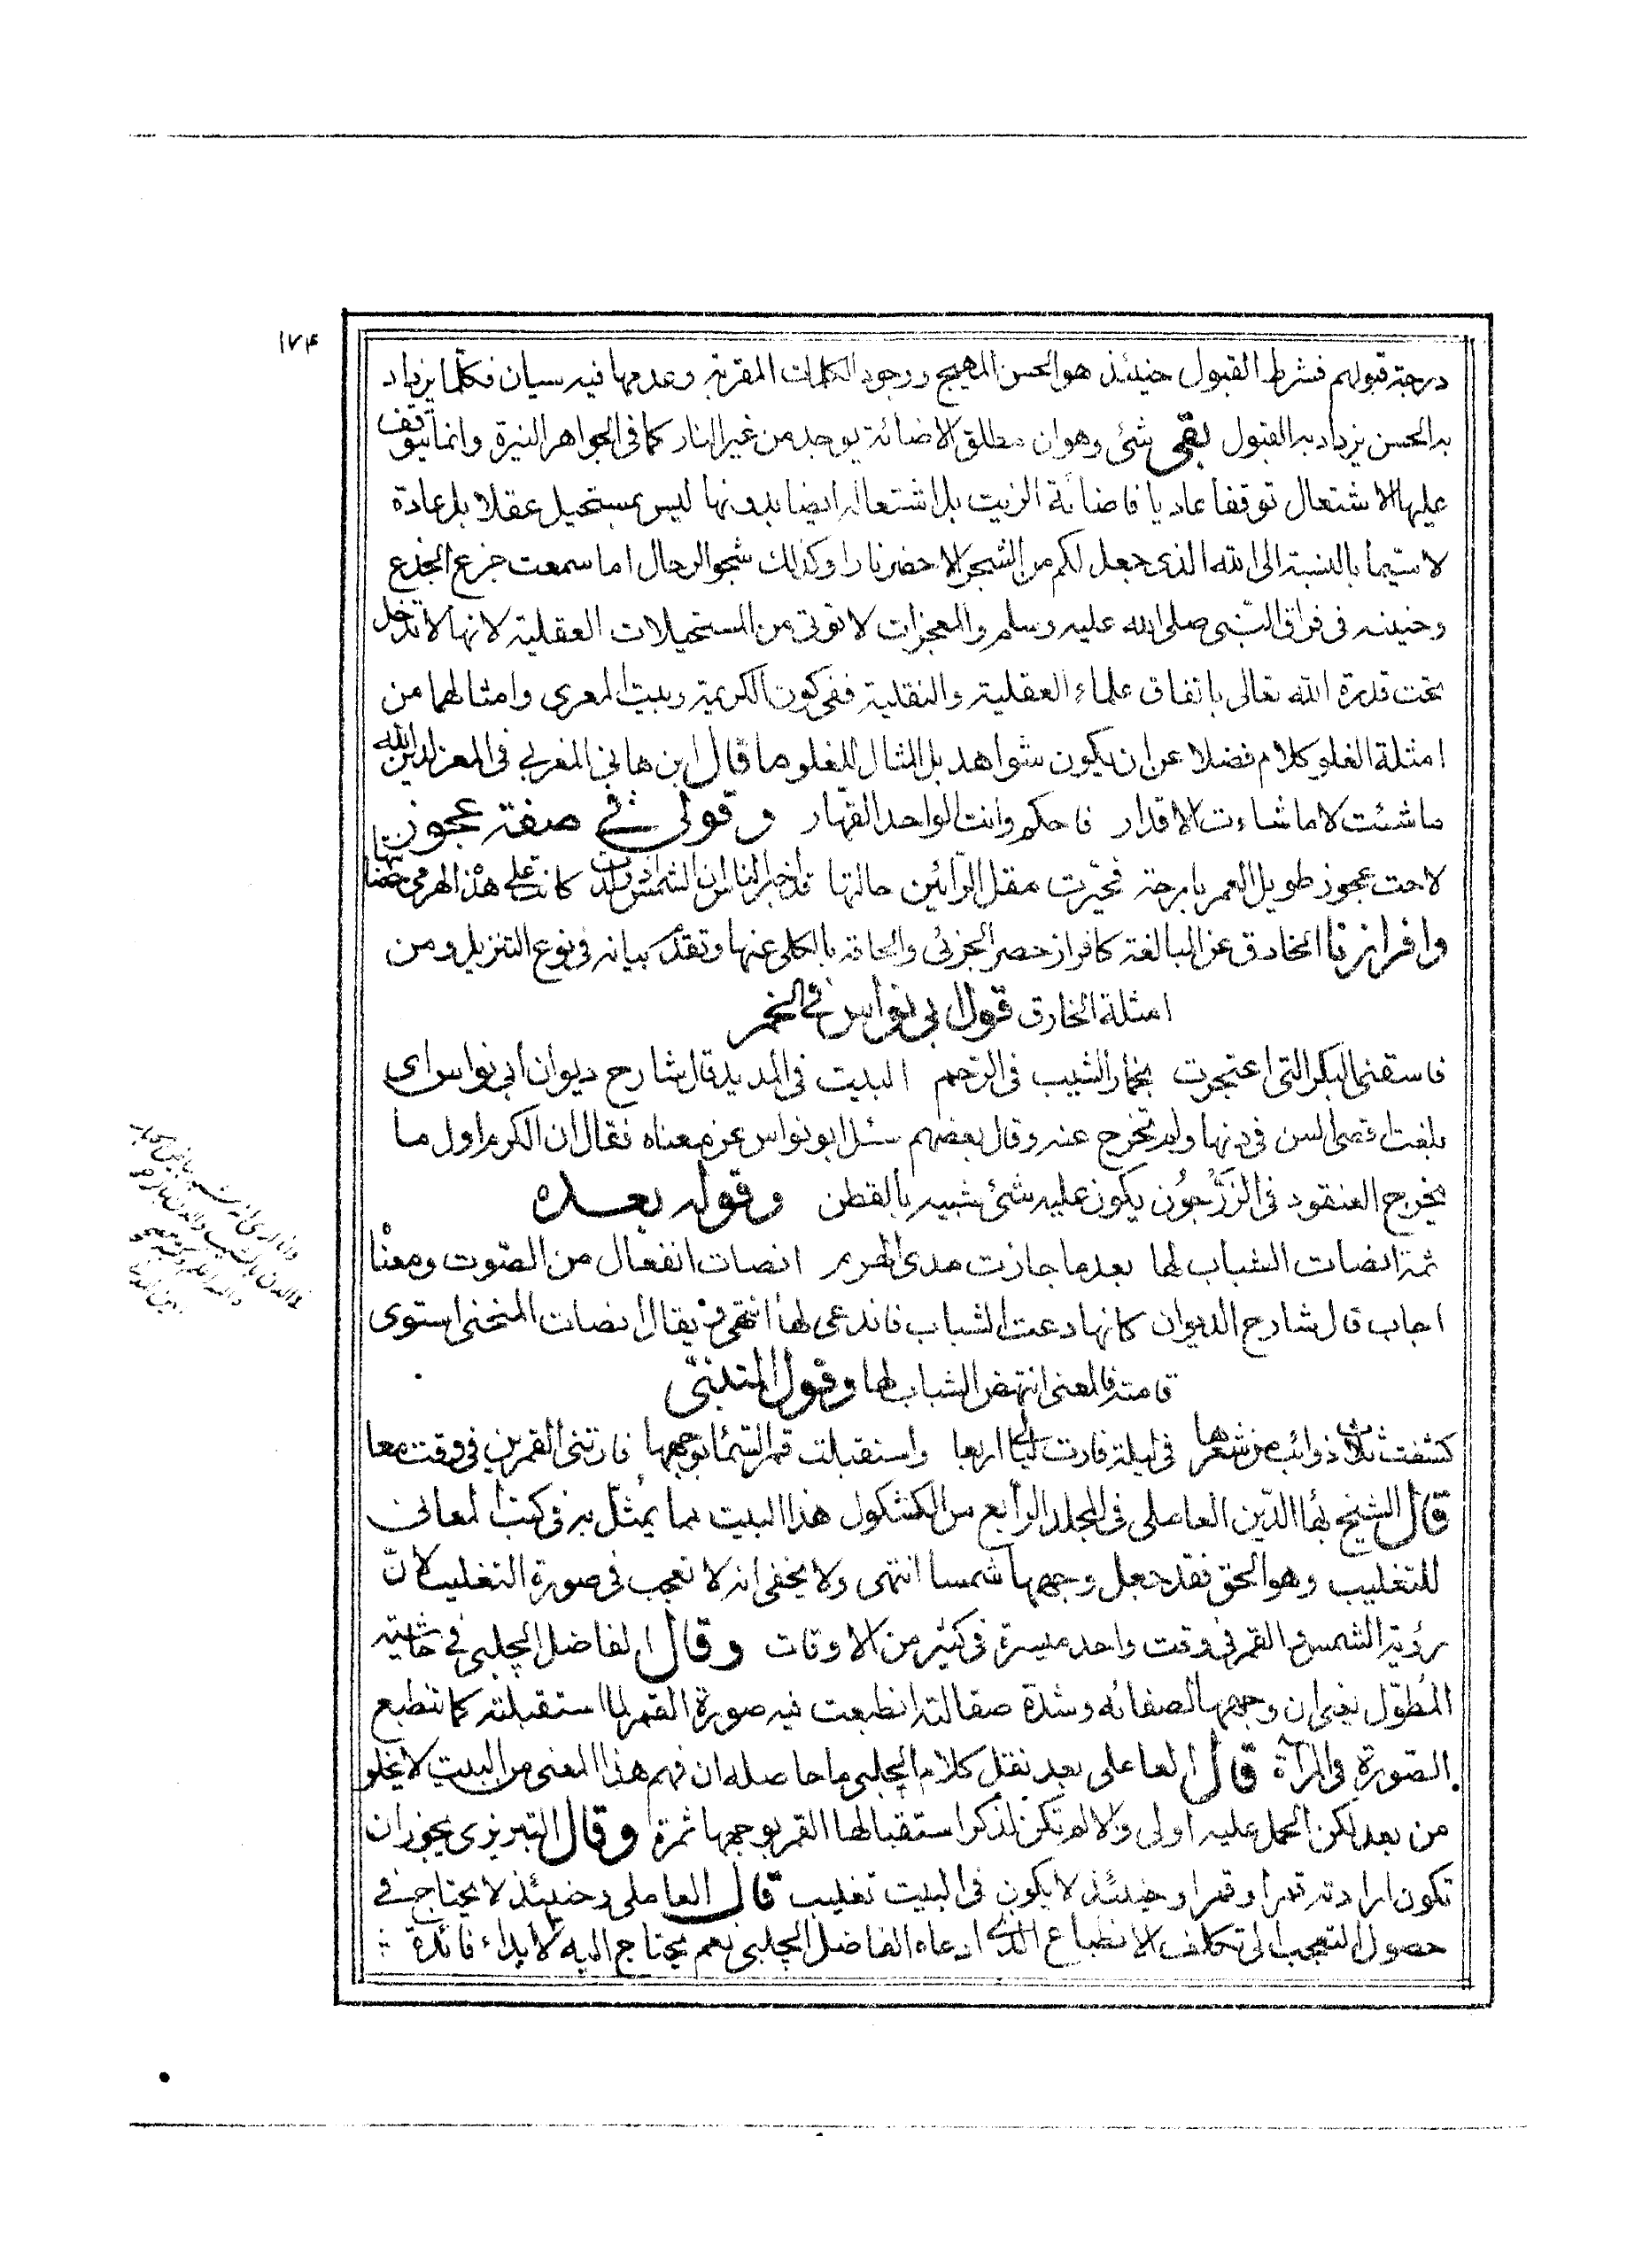 ١٧٤
درجة قبولهم فشرط القبول حينئذ هو الحسن المهيج ووجود الكلمات المقربة وعدمها فيه سيان فكلما يزداد
به الحسن يزداد به القبول بقى شئ وهو ان مطلق الاضائة يوجد من غير النار كما فى الجواهر النيرة وانما يتوقف
عليها الاشتعال توقفا عاديا فاضائة الزيت بل اشتعاله ايضا بدونها ليس بمستحيل عقلا بل عادة
لا سيما بالنسبة الى الله الذى جعل لكم من الشجر الاخضر نارا وكذلك شجو الرحال اما سمعت جزع الجذع
وحنينه فى فراق النبى صلى الله عليه وسلم والمعجزات لا تؤتى من المستحيلات العقلية لانها لا تدخل
تحت قدرة الله تعالى باتفاق علماء العقلية والنقلية ففى كون الكريمة وبيت المعرى وامثالهما من
امثلة الغلو كلام فضلا عن ان يكون شواهد بل المثال للغلو ما قال ابن هانى المغربى فى المعز لدين الله
ما شئت لا ما شاءت الاقدار فاحكم وانت الواحد القهار وقولى فى صفة عجوز
لاحت عجوز طويل العمر بارحة فحيّرت مقل الرّائين حالتها قد اخبر الناس ان الشمس اذ ولدت كانت على هذا الهرم حضنتها
وافرازنا الخارق عن المبالغة كافراز حصر الجزئى والحاقه بالكلى عنها وتقدّم بيانه فى نوع التنزيل ومن
امثلة الخارق قول ابى نواس فى الخمر
فاسقنى البكر التى اعتجرت بخمار الشيب فى الرّحم البيت فى المديد قال شارح ديوان ابى نواس اى
بلغت اقصى السن فى دنها ولم تخرج عنه وقال بعضهم سئل ابو نواس عن معناه فقال ان الكرم اول ما
يخرج العنقود فى الزَّرْجون يكون عليه شئ شبيه بالقطن وقوله بعده
ثمة انصات الشباب لها بعد ما جازت مدى الهرم انصات انفعال من الصّوت ومعناه
اجاب قال شارح الديوان كانها دعت الشباب فاندعى لها انتهى يقال انصات المنحنى استوى
قامته فالمعنى انتهض الشباب لها وقول المتنبّى
كشفت ثلاث ذوائب من شعرها فى ليلة فارت ليالى اربعا واستقبلت قمر السّماء بوجهها فارتنى القمرين فى وقت معا
قال الشيخ بهاء الدّين العاملى فى المجلد الرّابع من الكشكول هذا البيت مما يُمثّل به فى كتب المعانى
للتغليب وهو الحق فقد جعل وجهها شمسا انتهى ولا يخفى انه لا تعجب فى صورة التغليب لانّ
رؤية الشمس والقمر فى وقت واحد ميسرة فى كثير من الاوقات وقال الفاضل الچلبى فى حاشيته
المُطوّل يعنى ان وجهها لصفائه وشدّة صقالته انطبعت فيه صورة القمر لما استقبلته كما تنطبع
الصّورة فى المرآة قال العاملى بعد نقل كلام الچلبى ما حاصله ان فهم هذا المعنى من البيت لا يخلو
من بعد لكن الحمل عليه اولى والا لم تكن لذكر استقبالها القمر بوجهها ثمرة وقال التبريزى يجوز ان
تكون ارادته قمرا وقمرا وحينئذ لا يكون فى البيت تغليب قال العاملى وحينئذ لا يحتاج فى
حصول التعجب الى تكلف الانطباع الذى ادعاه الفاضل الچلبى نعم يحتاج اليه لابداء فائدة